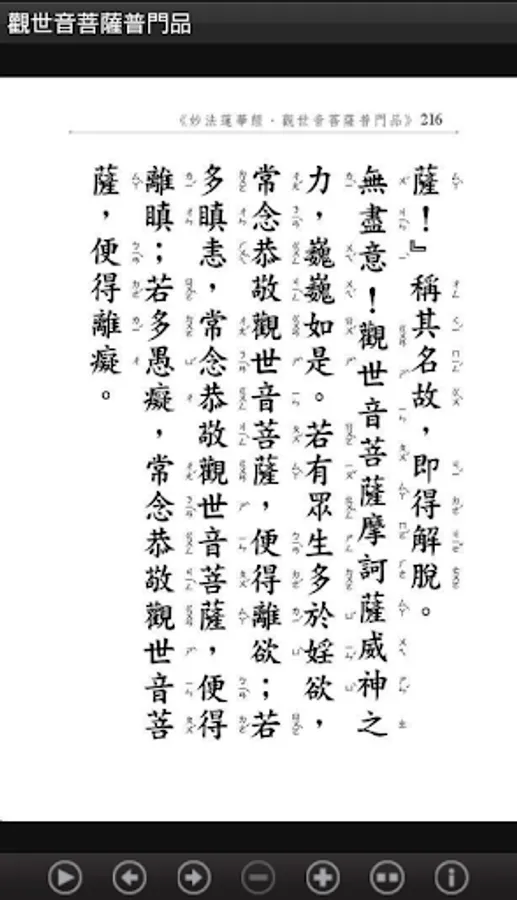 觀世音菩薩普門品
《妙法蓮華經·觀世音菩薩普門品》216
薩！』稱其名故，即得解脫。
無盡意！觀世音菩薩摩訶薩威神之
力，巍巍如是。若有眾生多於婬欲，
常念恭敬觀世音菩薩，便得離欲；若
多瞋恚，常念恭敬觀世音菩薩，便得
離瞋；若多愚癡，常念恭敬觀世音菩
薩，便得離癡。